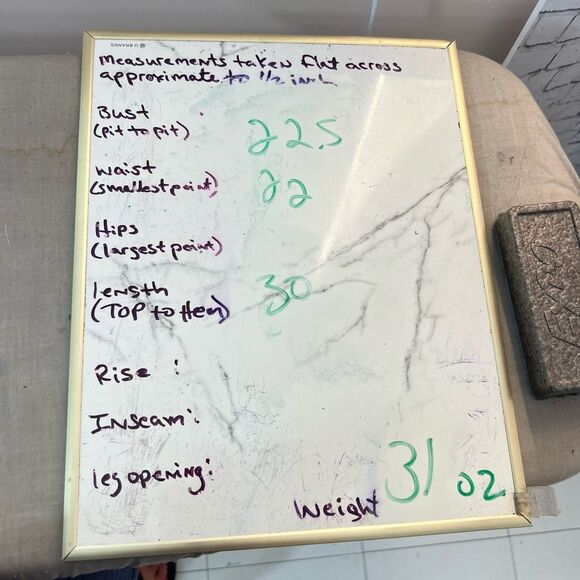 U BRANDS
measurements taken flat across
approximate to 1/2 inch
Bust 22.5
(pit to pit)
waist 22
(smallest point)
Hips
(largest point)
length 30
(TOP to Hem)
Rise :
Inseam:
leg opening:
Weight 31 oz